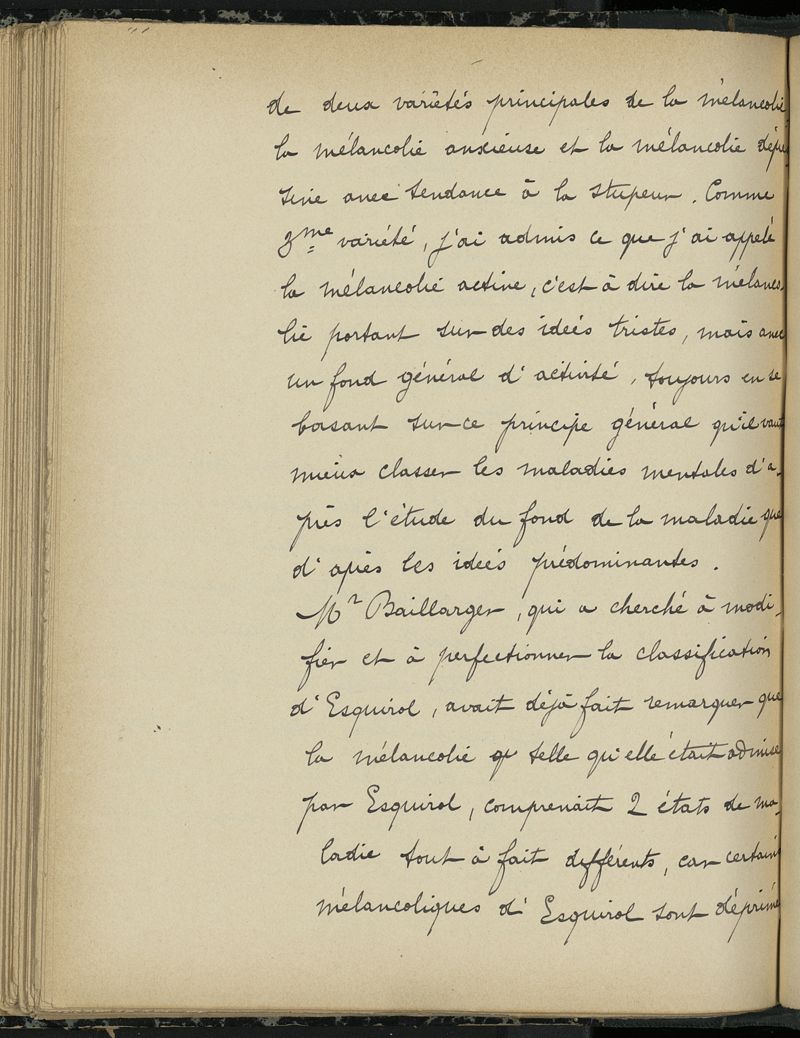 de deux variétés principales de la mélancolie
la mélancolie anxieuse et la mélancolie dépre
sive avec tendance à la stupeur. Comme
3me variété, j'ai admis ce que j'ai appelé
la mélancolie active, c'est à dire la mélanco-
lie portant sur des idées tristes, mais avec
un fond général d'activité, toujours en se
basant sur ce principe général qu'il vaut
mieux classer les maladies mentales d'a-
près l'étude du fond de la maladie que
d'après les idées prédominantes.
Mr Baillarger, qui a cherché à modi-
fier et à perfectionner la classification
d'Esquirol, avait déjà fait remarquer que
la mélancolie telle qu'elle était admise
par Esquirol, comprenait 2 états de ma-
ladie tout à fait différents, car certains
mélancoliques d'Esquirol sont déprimé